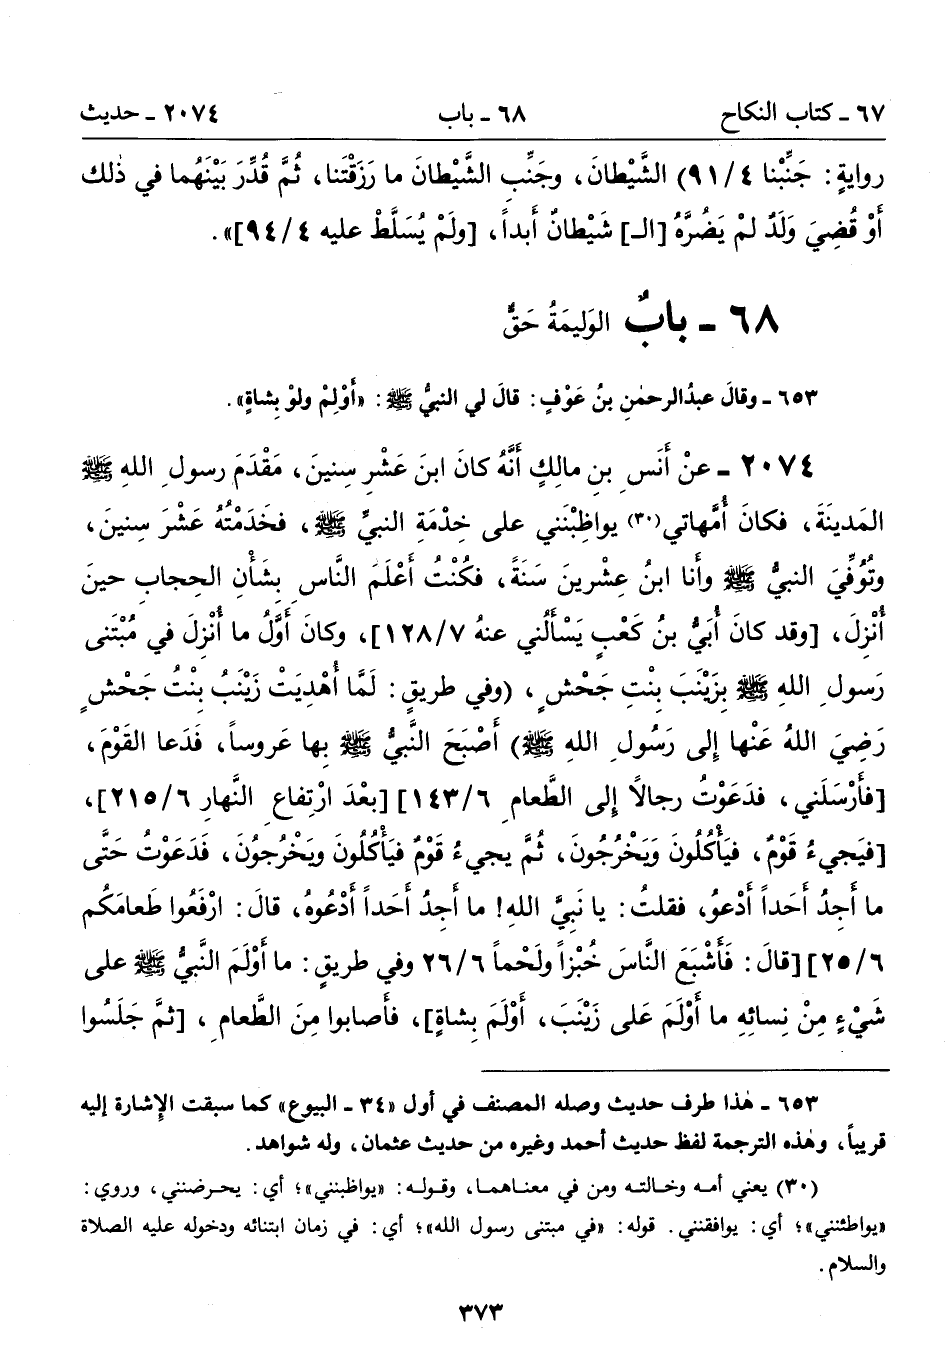 ٦٧ ـ كتاب النكاح ٦٨ ـ باب ٢٠٧٤ ـ حديث
روايةٍ: جَنِّبْنا ٩١/٤) الشَّيْطانَ، وجَنِّبِ الشَّيْطانَ ما رَزَقْتَنا، ثُمَّ قُدِّرَ بَيْنَهُما في ذٰلك
أَوْ قُضِيَ وَلَدٌ لمْ يَضُرَّهُ [الـ] شَيْطانٌ أَبداً، [ولَمْ يُسَلَّطْ عليه ٩٤/٤]».
٦٨ ـ بابٌ الوَليمَةُ حَقٌّ
٦٥٣ ـ وقالَ عبدُالرحمٰنِ بنُ عَوْفٍ: قالَ لي النبيُّ ﷺ: «أَوْلِمْ ولوْ بِشاةٍ».
٢٠٧٤ ـ عنْ أَنَسِ بنِ مالكٍ أَنَّهُ كانَ ابنَ عَشْرِ سِنينَ، مَقْدَمَ رسولِ اللهِ ﷺ
المَدينَةَ، فكانَ أُمَّهاتي(٣٠) يواظِبْنَني على خِدْمَةِ النبيِّ ﷺ، فخَدَمْتُهُ عَشْرَ سِنينَ،
وتُوُفِّيَ النبيُّ ﷺ وأَنا ابنُ عِشْرينَ سَنَةً، فكُنْتُ أَعْلَمَ النَّاسِ بِشَأْنِ الحِجابِ حينَ
أُنْزِلَ، [وقد كانَ أُبَيُّ بنُ كَعْبٍ يَسْأَلُني عنهُ ١٢٨/٧]، وكانَ أَوَّلُ ما أُنْزِلَ في مُبْتَنى
رَسولِ اللهِ ﷺ بِزَيْنَبَ بنْتِ جَحْشٍ، (وفي طريقٍ: لَمَّا أُهْدِيَتْ زَيْنَبُ بنْتُ جَحْشٍ
رَضِيَ اللهُ عَنْها إِلى رَسُولِ اللهِ ﷺ) أَصْبَحَ النَّبيُّ ﷺ بِها عَروساً، فَدَعا القَوْمَ،
[فأَرْسَلَني، فدَعَوْتُ رجالاً إِلى الطَّعامِ ١٤٣/٦] [بعْدَ ارْتِفاعِ النَّهارِ ٢١٥/٦]،
[فيَجيءُ قَوْمٌ، فيَأْكُلُونَ وَيَخْرُجُونَ، ثُمَّ يجيءُ قَوْمٌ فيَأْكُلُونَ ويَخْرجُونَ، فَدَعَوْتُ حَتَّى
ما أَجِدُ أَحَداً أَدْعُو، فقلتُ: يا نَبِيَّ اللهِ! ما أَجِدُ أَحَداً أَدْعُوهُ، قالَ: ارْفَعُوا طَعامَكُم
٢٥/٦] [قالَ: فَأَشْبَعَ النَّاسَ خُبْزاً ولَحْماً ٢٦/٦ وفي طريقٍ: ما أَوْلَمَ النَّبيُّ ﷺ على
شَيْءٍ مِنْ نِسائِهِ ما أَوْلَمَ عَلى زَيْنَبَ، أَوْلَمَ بِشاةٍ]، فأَصابوا مِنَ الطَّعامِ، [ثمَّ جَلَسُوا
٦٥٣ ـ هٰذا طرف حديث وصله المصنف في أول «٣٤ ـ البيوع» كما سبقت الإشارة إليه
قريباً، وهٰذه الترجمة لفظ حديث أحمد وغيره من حديث عثمان، وله شواهد.
(٣٠) يعني أمه وخالته ومن في معناهما، وقوله: «يواظبنني»؛ أي: يحرضنني، وروي:
«يواطئنني»؛ أي: يوافقنني. قوله: «في مبتنى رسول الله»؛ أي: في زمان ابتنائه ودخوله عليه الصلاة
والسلام.
٣٧٣